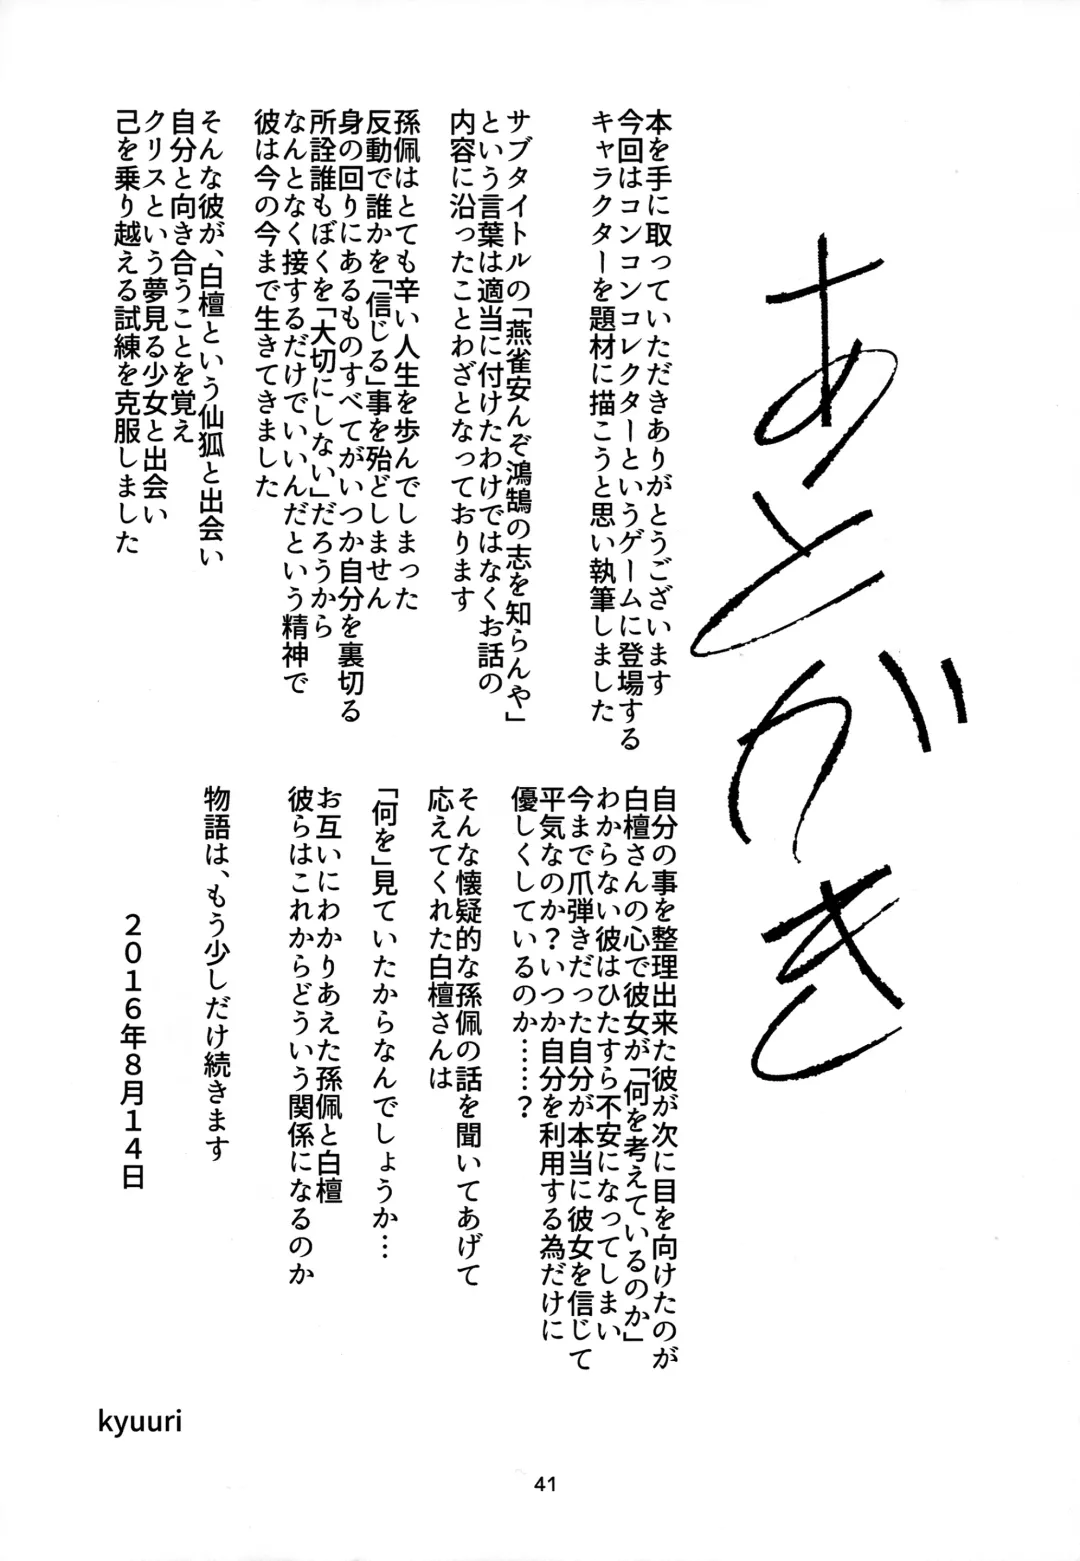 あとがき
本を手に取っていただきありがとうございます
今回はコンコンコレクターというゲームに登場する
キャラクターを題材に描こうと思い執筆しました
サブタイトルの「燕雀安んぞ鴻鵠の志を知らんや」
という言葉は適当に付けたわけではなくお話の
内容に沿ったことわざとなっております
孫佩はとても辛い人生を歩んでしまった
反動で誰かを「信じる」事を殆どしません
身の回りにあるものすべてがいつか自分を裏切る
所詮誰もぼくを「大切にしない」だろうから
なんとなく接するだけでいいんだという精神で
彼は今の今まで生きてきました
そんな彼が、白檀という仙狐と出会い
自分と向き合うことを覚え
クリスという夢見る少女と出会い
己を乗り越える試練を克服しました
自分の事を整理出来た彼が次に目を向けたのが
白檀さんの心で彼女が「何を考えているのか」
わからない彼はひたすら不安になってしまい
今まで爪弾きだった自分が本当に彼女を信じて
平気なのか？いつか自分を利用する為だけに
優しくしているのか……？
そんな懐疑的な孫佩の話を聞いてあげて
応えてくれた白檀さんは
「何を」見ていたからなんでしょうか…
お互いにわかりあえた孫佩と白檀
彼らはこれからどういう関係になるのか
物語は、もう少しだけ続きます
２０１６年８月１４日
kyuuri
41